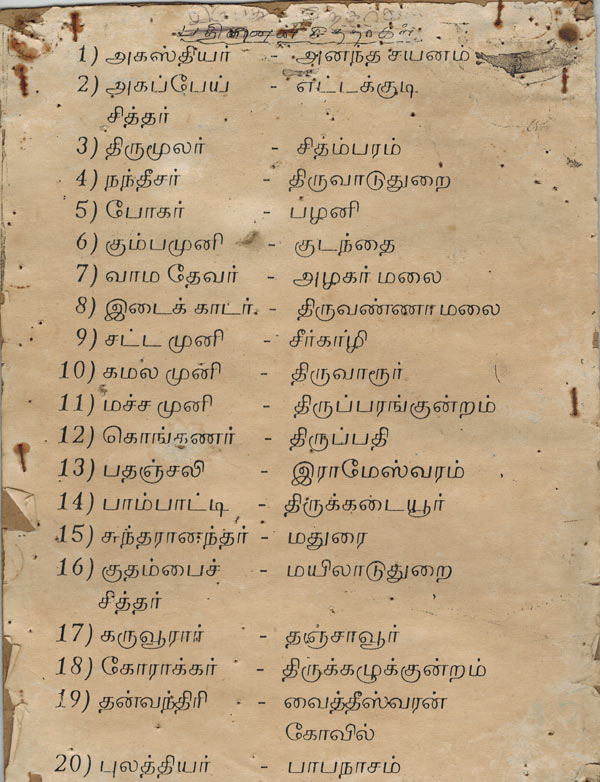 பதினெண் சித்தர்கள்
1) அகஸ்தியர் - அனந்த சயனம்
2) அகப்பேய் - எட்டக்குடி
சித்தர்
3) திருமூலர் - சிதம்பரம்
4) நந்தீசர் - திருவாடுதுறை
5) போகர் - பழனி
6) கும்பமுனி - குடந்தை
7) வாம தேவர் - அழகர் மலை
8) இடைக் காடர் - திருவண்ணாமலை
9) சட்ட முனி - சீர்காழி
10) கமல முனி - திருவாரூர்
11) மச்ச முனி - திருப்பரங்குன்றம்
12) கொங்கணர் - திருப்பதி
13) பதஞ்சலி - இராமேஸ்வரம்
14) பாம்பாட்டி - திருக்கடையூர்
15) சுந்தரானந்தர் - மதுரை
16) குதம்பைச் - மயிலாடுதுறை
சித்தர்
17) கருவூரார் - தஞ்சாவூர்
18) கோராக்கர் - திருக்கழுக்குன்றம்
19) தன்வந்திரி - வைத்தீஸ்வரன்
கோவில்
20) புலத்தியர் - பாபநாசம்